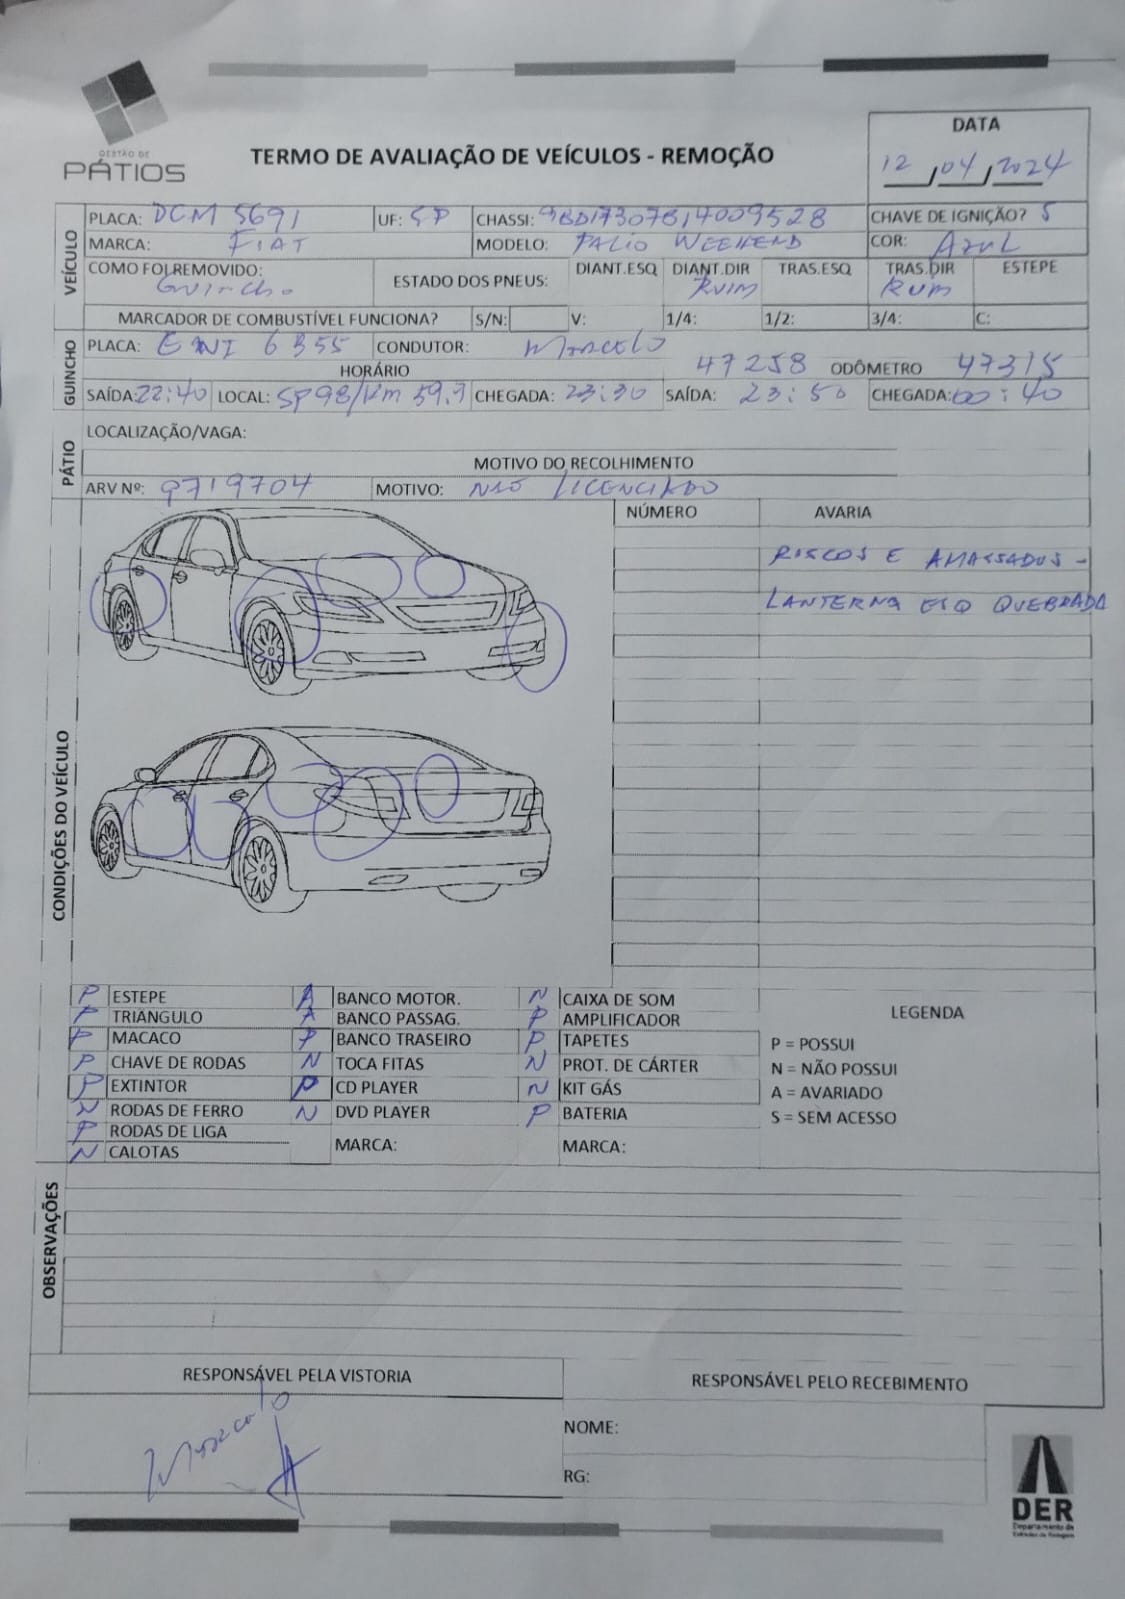 GESTÃO DE
PÁTIOS
TERMO DE AVALIAÇÃO DE VEÍCULOS - REMOÇÃO
DATA
12 / 04 / 2024
VEÍCULO
PLACA: DCM 5691 UF: SP CHASSI: 9BD17307814009528 CHAVE DE IGNIÇÃO? S
MARCA: FIAT MODELO: PALIO WEEKEND COR: AZUL
COMO FOI REMOVIDO: Guincho ESTADO DOS PNEUS: DIANT.ESQ DIANT.DIR TRAS.ESQ TRAS.DIR ESTEPE
RUIM RUIM
MARCADOR DE COMBUSTÍVEL FUNCIONA? S/N: V: 1/4: 1/2: 3/4: C:
GUINCHO
PLACA: ENI 6355 CONDUTOR: Marcelo
HORÁRIO 47258 ODÔMETRO 47315
SAÍDA: 22:40 LOCAL: SP98/Km 59.7 CHEGADA: 23:30 SAÍDA: 23:50 CHEGADA: 00:40
PÁTIO
LOCALIZAÇÃO/VAGA:
MOTIVO DO RECOLHIMENTO
ARV Nº: 9719704 MOTIVO: NÃO LICENCIADO
CONDIÇÕES DO VEÍCULO
NÚMERO AVARIA
RISCOS E AMASSADOS -
LANTERNA ESQ QUEBRADA
P ESTEPE A BANCO MOTOR. N CAIXA DE SOM
P TRIÂNGULO A BANCO PASSAG. P AMPLIFICADOR
P MACACO P BANCO TRASEIRO P TAPETES
P CHAVE DE RODAS N TOCA FITAS N PROT. DE CÁRTER
P EXTINTOR P CD PLAYER N KIT GÁS
N RODAS DE FERRO N DVD PLAYER P BATERIA
P RODAS DE LIGA MARCA: MARCA:
N CALOTAS
LEGENDA
P = POSSUI
N = NÃO POSSUI
A = AVARIADO
S = SEM ACESSO
OBSERVAÇÕES
RESPONSÁVEL PELA VISTORIA
Marcelo
RESPONSÁVEL PELO RECEBIMENTO
NOME:
RG:
DER
Departamento de
Estradas de Rodagem